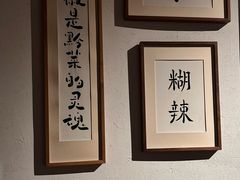 是黔菜的灵魂
糊辣